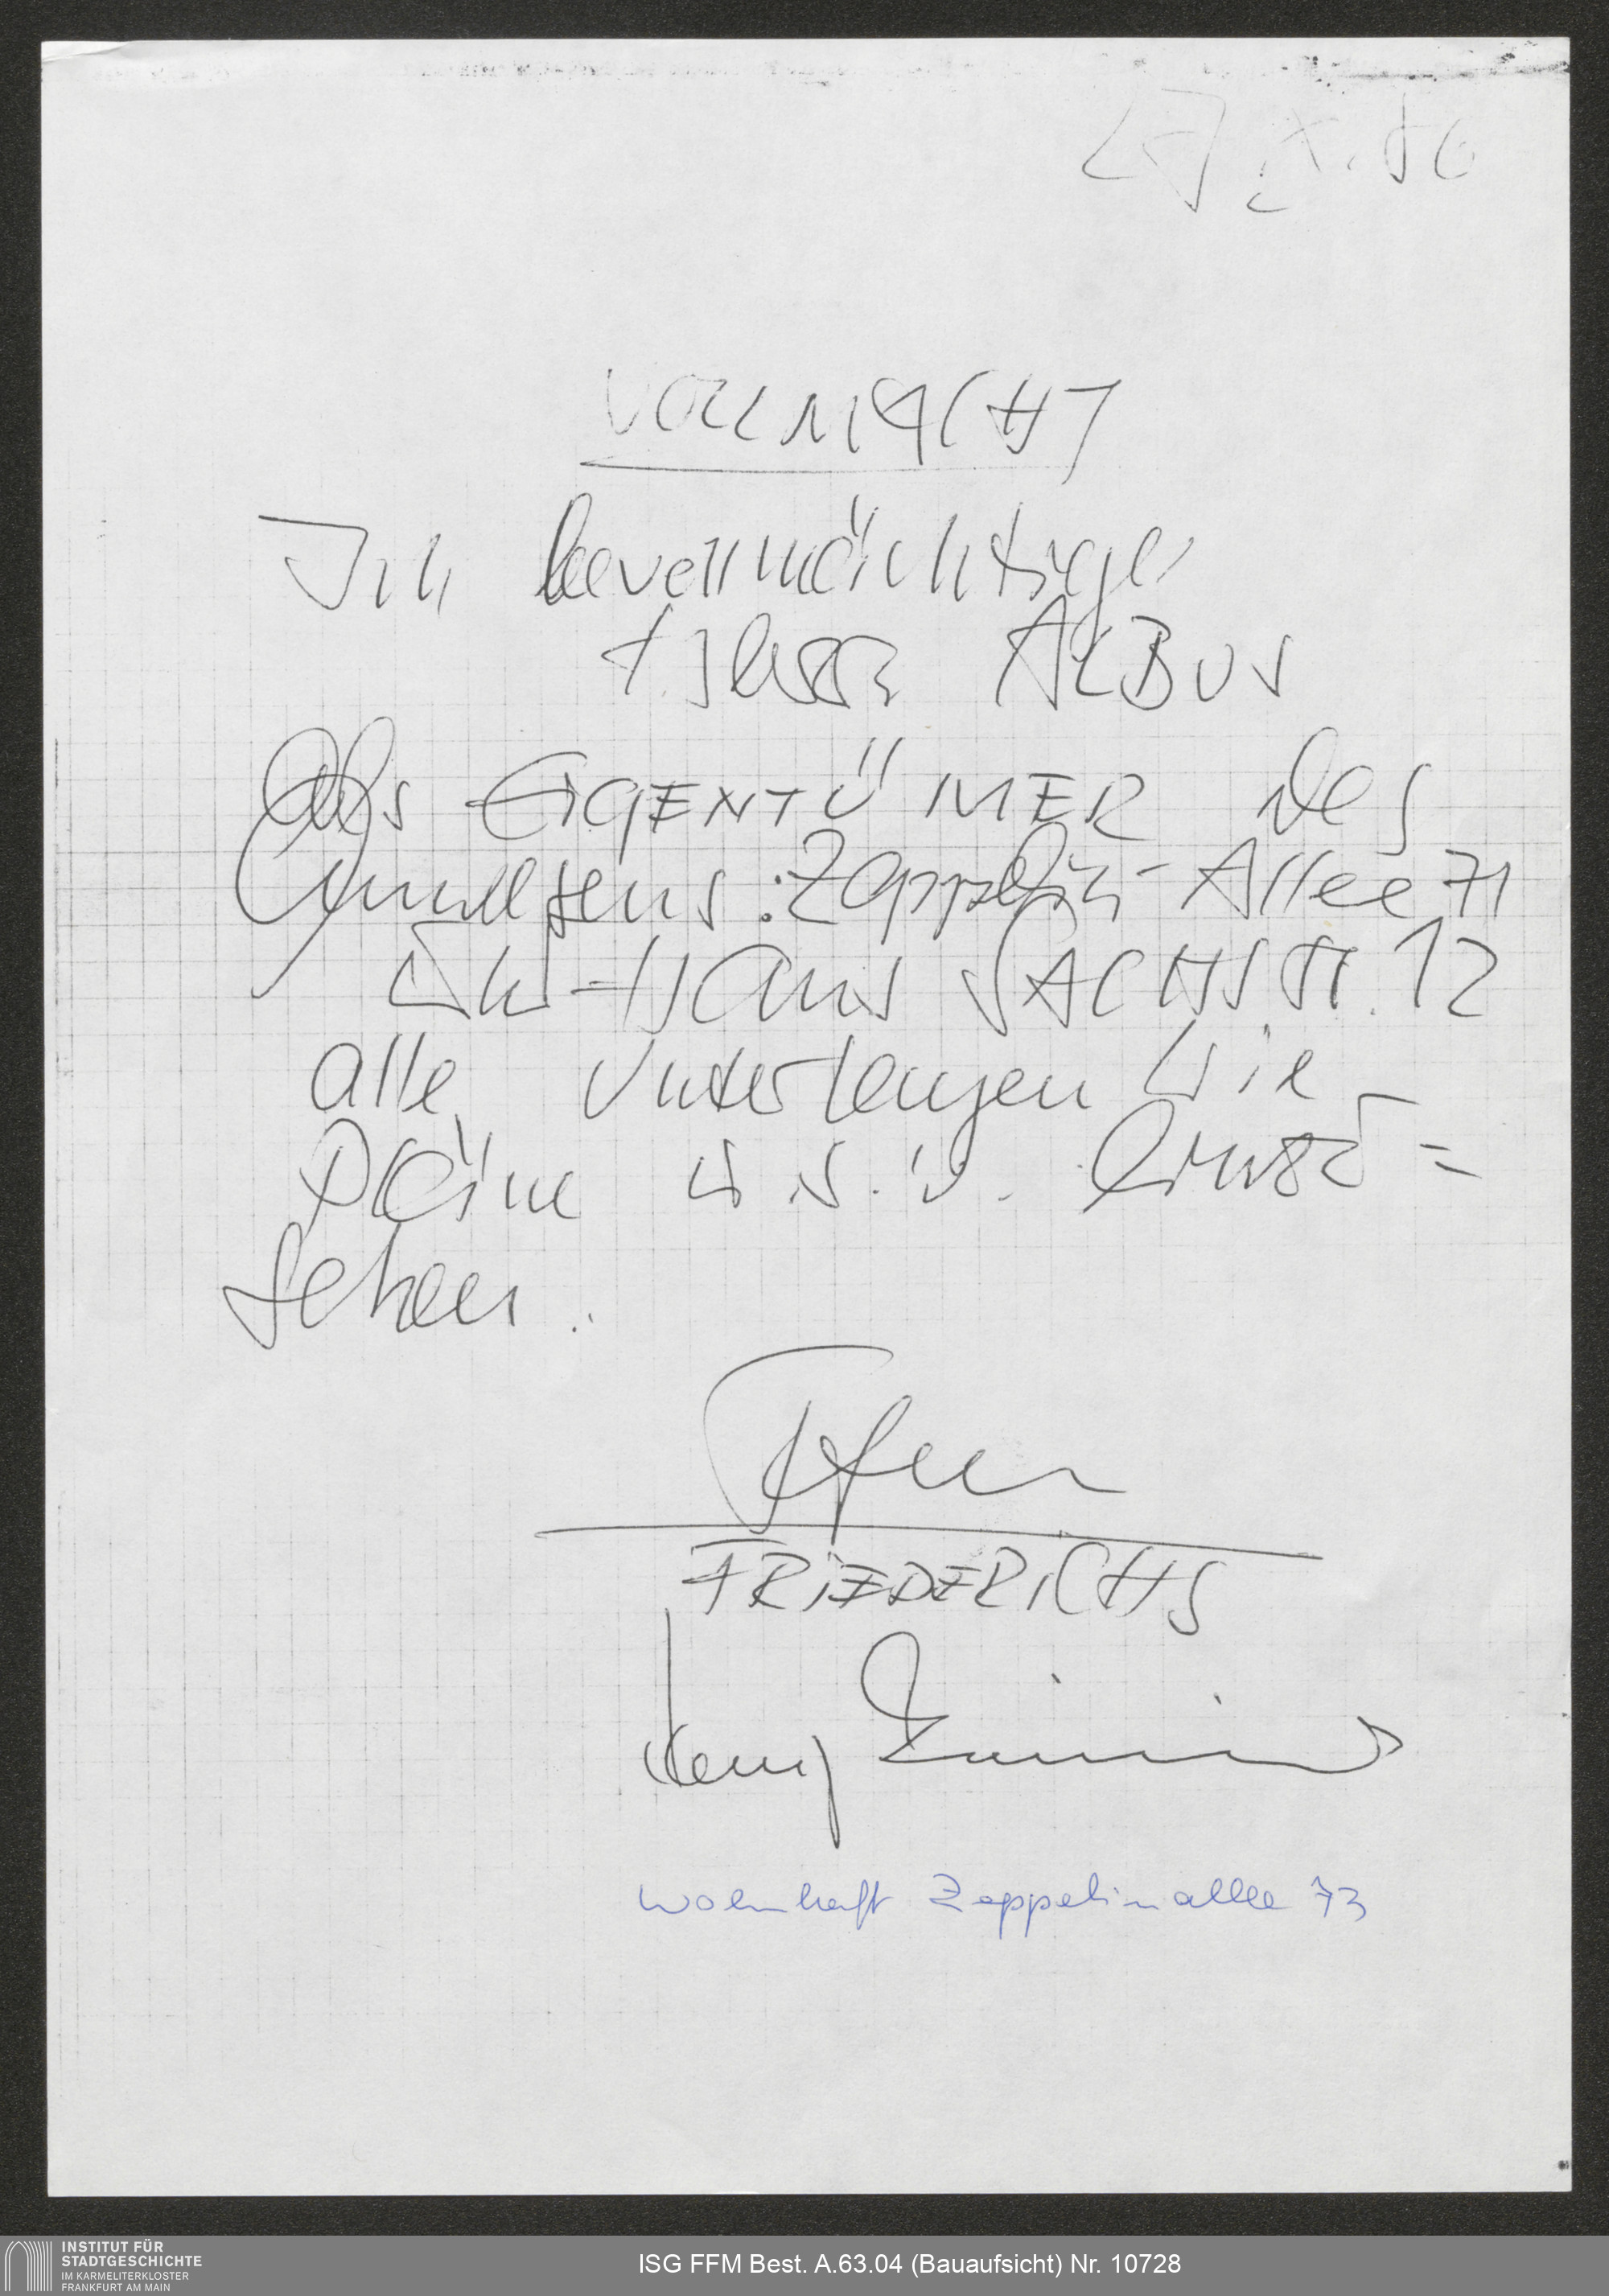 VOLLMACHT
Ich bevollmächtige
Herrn ALBUS
als EIGENTÜMER des
Anwesens: Zeppelin-Allee 71
Hans SACHSSTR. 12
alle Unterlagen wie
Pläne u.s.w. einzu=
sehen.
FRIEDERICHS
wohnhaft Zeppelinallee 73
INSTITUT FÜR
STADTGESCHICHTE
IM KARMELITERKLOSTER
FRANKFURT AM MAIN
ISG FFM Best. A.63.04 (Bauaufsicht) Nr. 10728